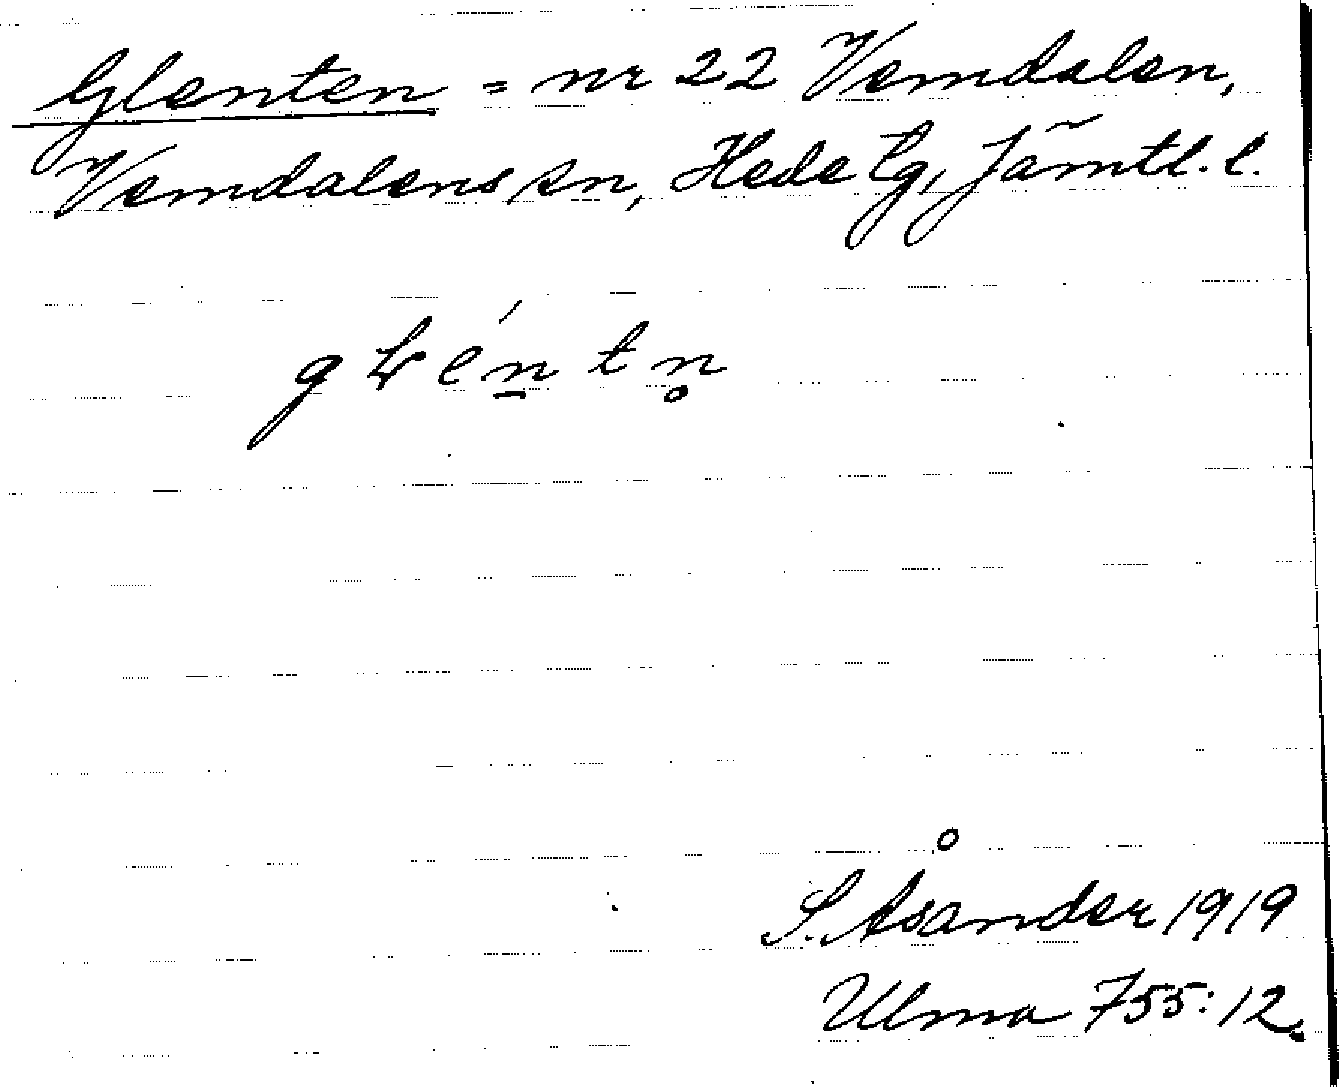 Glenten = nr 22 Vemdalen,
Vemdalens sn, Hede tg, Jämtl. l.
g ł é n̠ t n̥
S. Åsander 1919
Ulma 755:12.